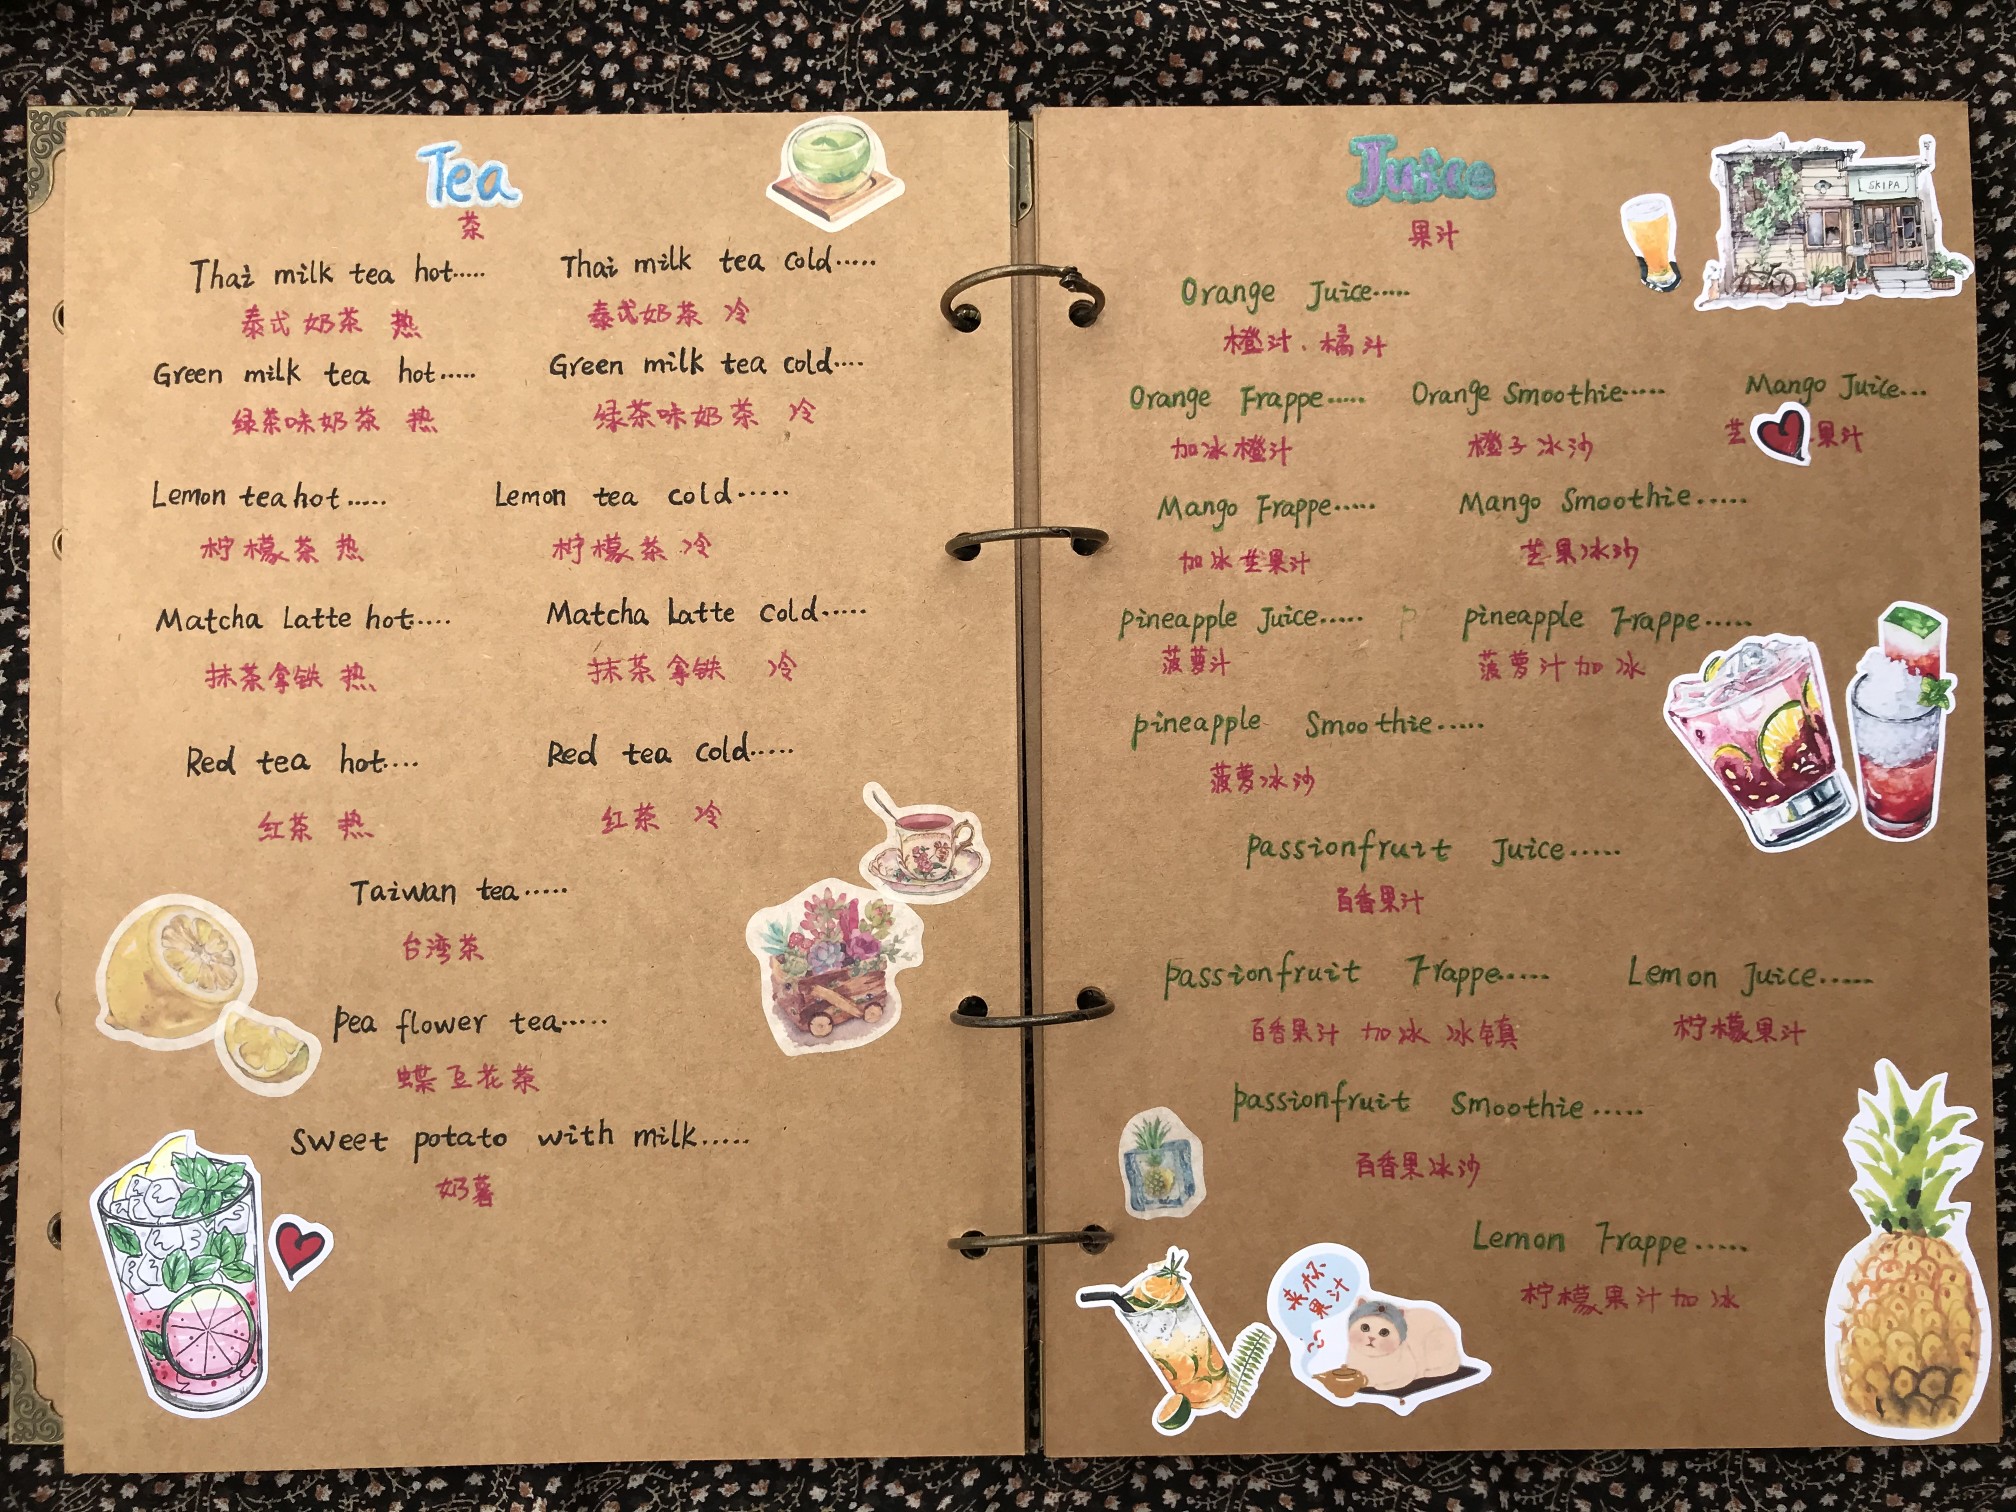 Tea
茶
Thai milk tea hot..... Thai milk tea cold.....
泰式奶茶 热 泰式奶茶 冷
Green milk tea hot..... Green milk tea cold....
绿茶味奶茶 热 绿茶味奶茶 冷
Lemon tea hot..... Lemon tea cold.....
柠檬茶 热 柠檬茶 冷
Matcha Latte hot..... Matcha Latte cold.....
抹茶拿铁 热 抹茶拿铁 冷
Red tea hot.... Red tea cold.....
红茶 热 红茶 冷
Taiwan tea.....
台湾茶
pea flower tea.....
蝶豆花茶
Sweet potato with milk.....
奶薯
Juice
果汁
SKIPA
Orange Juice.....
橙汁、橘汁
Orange Frappe..... Orange Smoothie..... Mango Juice...
加冰橙汁 橙子冰沙 芒果汁
Mango Frappe..... Mango Smoothie.....
加冰芒果汁 芒果冰沙
pineapple Juice..... P pineapple Frappe.....
菠萝汁 菠萝汁加冰
pineapple Smoothie.....
菠萝冰沙
passionfruit Juice.....
百香果汁
passionfruit Frappe..... Lemon Juice.....
百香果汁 加冰 冰镇 柠檬果汁
passionfruit Smoothie.....
百香果冰沙
Lemon Frappe.....
柠檬果汁加冰
来杯
果汁
~~